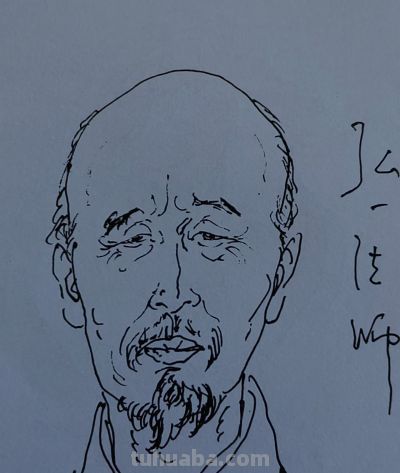 弘一法师
tuhuaba.com